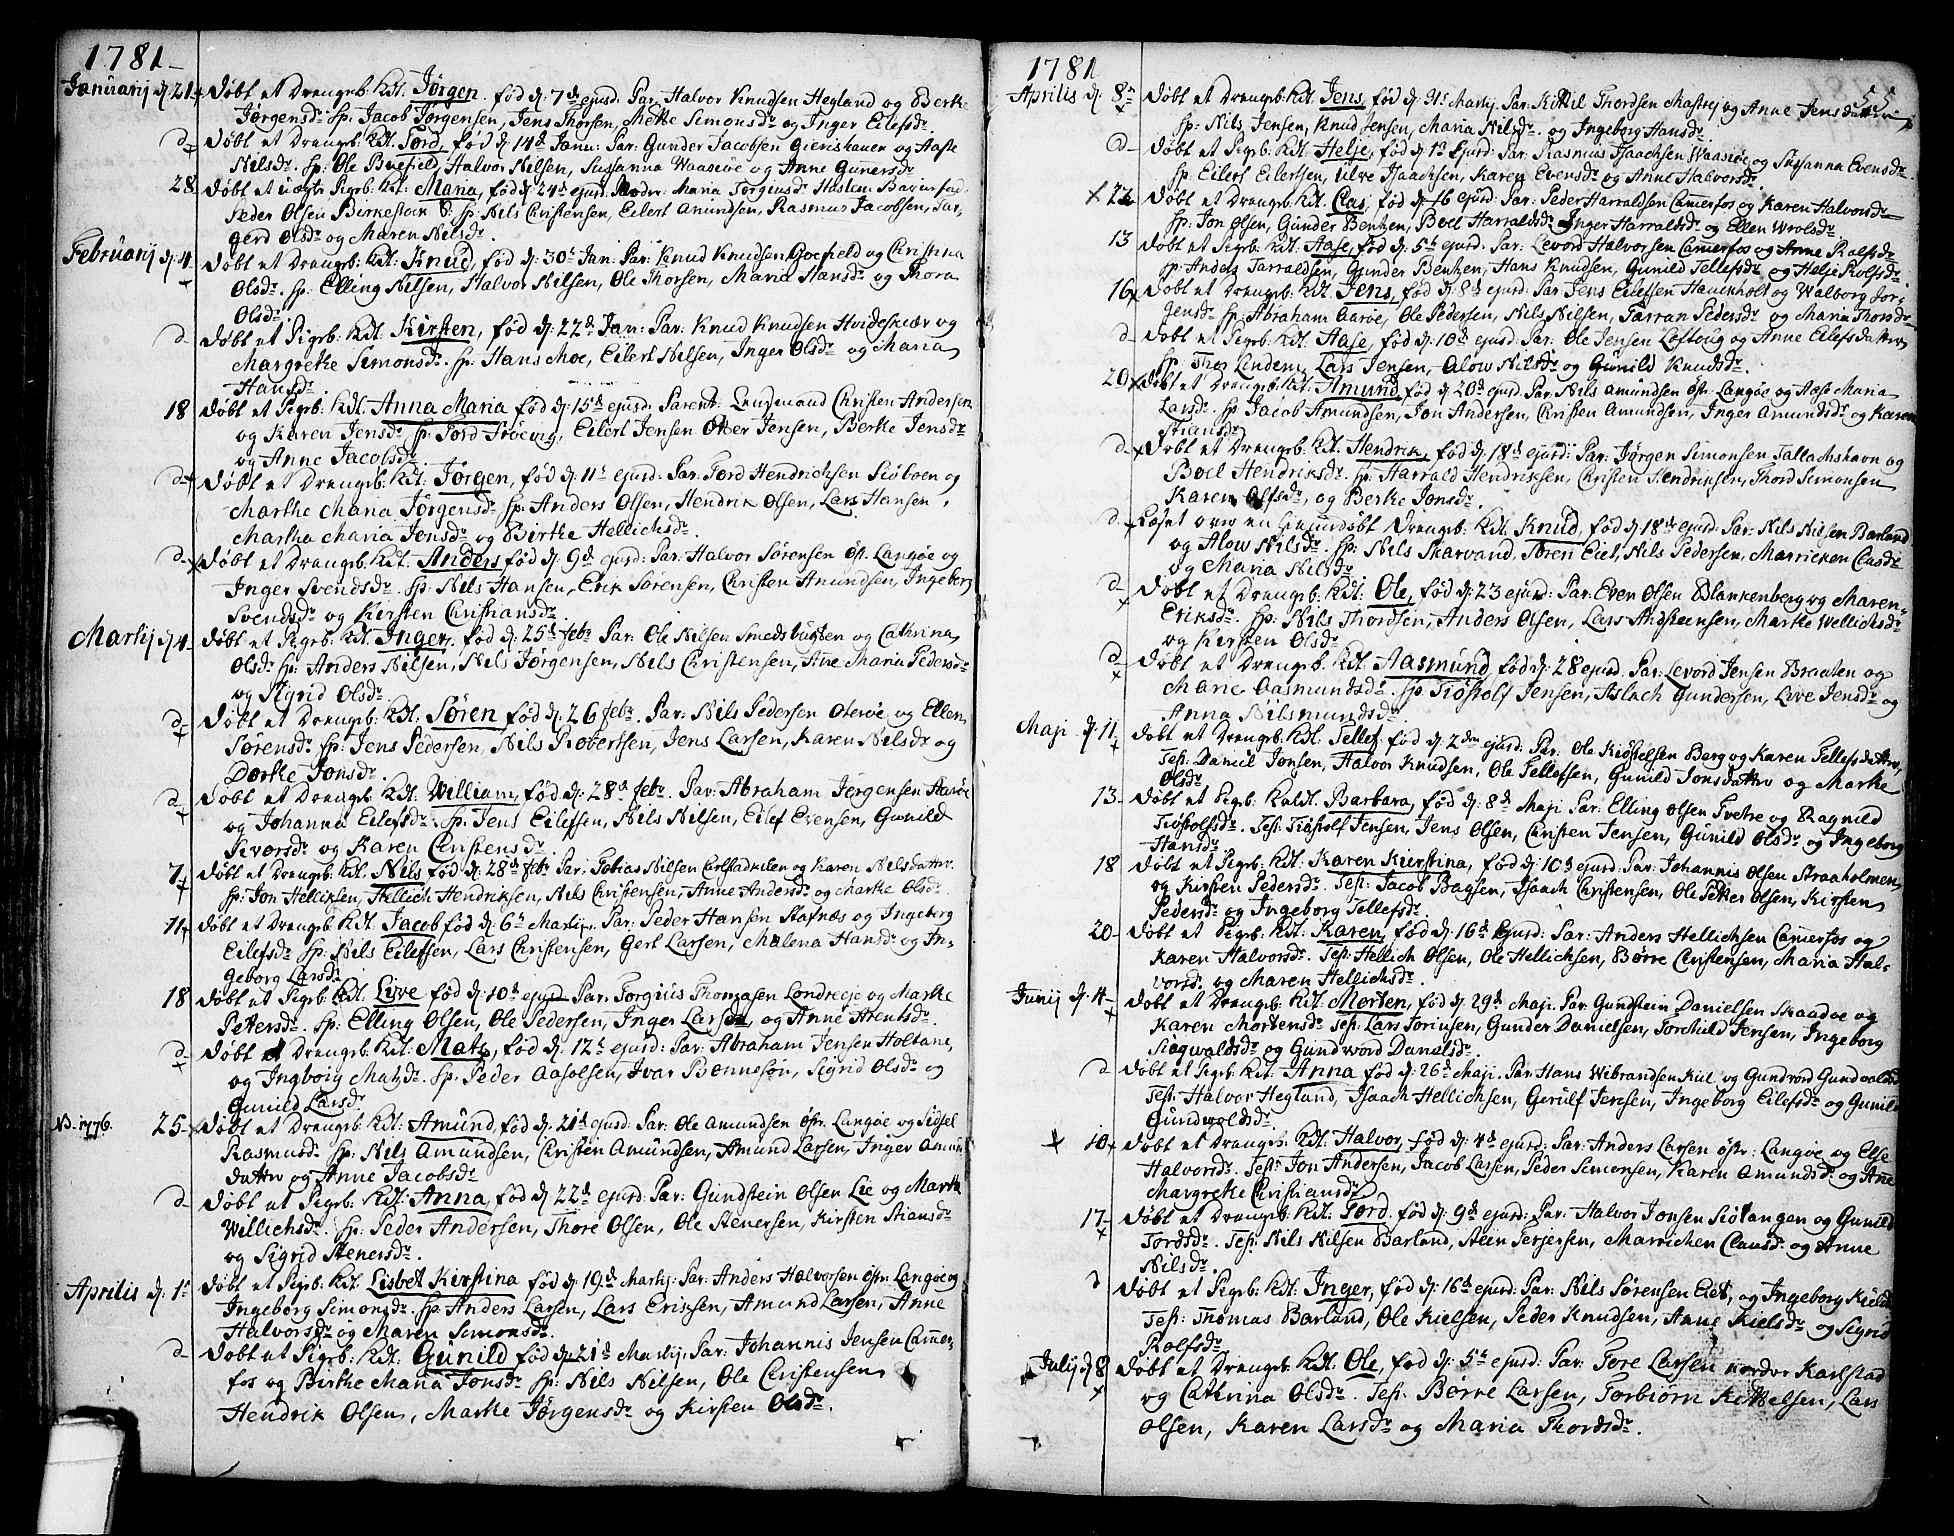 1781
Januarij d. 21 Døbt et Drengeb: kdt. Jørgen. fød d: 7de ejusd Par: Halvor Knudsen Hegland og Berte
Jørgensdr. Sp: Jacob Jørgensen, Jens Thorsen, Mette Simonsdr. og Inger Eilefsdr.
d- Døbt et Drengeb: kdt. Tord, fød d. 14d Janu: Par: Gunder Jacobsen
Nilsdr. Sp: Ole Halvor Nilsen, Susanna Waasøe og Anne Gunersdr.
28 Døbt et uægte Pigeb: kdt: Maria, fød d. 24d ejusd. Modr. Maria Torgiusdr.
Peder Olsen Birkestock Sp: Nils Christensen, Eilert Amundsen, Rasmus Jacobsen, Tar-
gerd Olsdr. og Maren Nilsdr.
Februarij d. 4 Døbt et Drengeb: kdt: Knud, fød d: 30t Jan: Par: Knud Knudsen og Christina
Olsdr. Sp: Elling Nilsen, Halvor Nilsen, Ole Thorsen, Maria Hansdr. og Thora
Olsdr.
d- Døbt et Pigeb: kdt: Kirsten, fød d: 22d Jan: Par: Knud Knudsen Hvideskiær og
Margrethe Simonsdr. Sp: Hans Moe, Eilert Nilsen, Inger Olsdr. og Maria
Hansdr.
18 Døbt et Pigeb: kdt: Anna Maria fød d: 15d ejusd. Parent: Christen Andersen
og Karen Jensdr. Sp: Tord Eilert Jensen Jensen, Berte Jensdr.
og Anne Jacobsdr.
d- Døbt et Drengeb: kdt: Jørgen, fød d. 11t ejusd: Par: Tord Hendrichsen og
Marthe Maria Jørgensdr. Sp: Anders Olsen, Hendrik Olsen, Lars Hansen,
Martha Maria Jensdr. og Birthe Hellichsdr.
d- Døbt et Drengeb: kdt: Anders fød d. 9d ejusd: Par: Halvor Sørensen østr. Langøe og
Inger Svendsdr. Sp: Nils Hansen, Erik Sørensen, Christen Amundsen, Ingeberg
Svendsdr. og Kirsten Christiansdr.
Martij d 4 Døbt et Pigeb: kdt: Inger, fød d: 25d febr. Par: Ole Nilsen og Cathrina
Olsdr. Sp: Anders Nilsen, Nils Jørgensen, Nils Christensen, Anne Maria Pedersdr.
og Sigrid Olsdr.
d- Døbt et Drengeb: kdt: Søren fød d. 26 febr. Par: Nils Pedersen Oterøe og Ellen
Sørensdr. Sp: Jens Pedersen, Nils Robertsen, Jens Larsen, Karen Nilsdr. og
Dorthe Jonsdr.
d- Døbt et Drengeb kdt: William, fød d. 28d febr. Par: Abraham Jørgensen Aarøe
og Johanna Eilefsdr. Sp: Jens Eilefsen, Nils Nilsen, Eilef Evensen, Gunild
og Karen Christensdr.
7 Døbt et Drengeb: kdt: Nils fød d. 28d febr. Par: Tobias Nilsen og Karen Nilsdatter.
Sp: Jon Hellicksen, Hellich Hendriksen, Nils Christensen, Anne Andersdr. og Marthe Olsdr.
11 Døbt et Drengeb: kdt: Jacob fød d. 6t Martij. Par: Peder Hansen Stafnæs og Ingeberg
Eilefsdr. Sp: Nils Eilefsen, Lars Christensen, Gert Larsen, Malena Hansdr. og In-
geborg Larsdr.
18 Døbt et Pigeb: kdt: Live fød d: 10d ejusd Par: Torgius Thomasen og Marthe
Petersdr. Sp: Elling Olsen, Ole Pedersen, Inger Larsdr. og Anne Arentsdr.
d- Døbt et Drengeb: kdt: Mats, fød d. 12t ejusd: Par: Abraham Jensen Holtane
og Ingborg Matsdr. Sp: Peder Aasolsen, Ivar Bonneson, Sigrid Olsdr og
Gunild Larsdr.
NB. 1776. 25 Døbt et Drengeb: kdt: Amund, fød d. 21d ejusd. Par: Ole Amundsen østr. Langøe og Sidsel
Rasmusdr. Sp: Nils Amundsen, Christen Amundsen, Amund Larsen, Inger Amun
datter og Anne Jacobsdr.
d- Døbt et Pigeb: kdt: Anna, fød d. 22d ejusd: Par: Gundstein Olsen Lie og Marthe
Willichsdr. Sp: Peder Andersen, Thore Olsen, Ole Stenersen, Kirsten Stiansdr.
og Sigrid Stenersdr.
Aprilis d. 1t Døbt et Pigeb: kdt: Lisbet Kirstina fød d: 19d Martij: Par: Anders Halvorsen østr. Langøe og
Ingeborg Simonsdr. Sp: Anders Larsen, Lars Ericksen, Amund Larsen, Anne
Halvorsdr. og Maren Simonsdr.
d- Døbt et Pigeb: kdt: Gunild, fød d. 21d Martij: Par: Johannis Jensen Camer-
fos og Birthe Maria Jonsdr. Sp: Nils Nilsen, Ole Christensen
Hendrik Olsen, Marthe Jørgensdr. og Kirsten Olsdr.
1781
55
Aprilis d. 8 Døbt et Drengeb: kdt: Jens, fød d: 31t Martij. Par: Kittil Thordsen og Anne Jensdatter
Sp: Nils Jensen, Knud Jensen, Maria Nilsdr. og Ingeborg Hansdr.
d- Døbt et Pigeb: kdt. Helje, fød d. 1t Ejusd: Par: Rasmus Isaachsen Waasøe og Susanna Evensdr.
Sp: Eilert Eilertsen, Ulve Isaachsen, Karen Evensdr. og Anne Halvorsdr.
22 Døbt et Drengeb: kdt. Clas, fød d. 16 ejusd. Par: Peder Harraldsen Camerfos og Karen Halvorsdr.
Sp: Jon Olsen, Gunder Bentzen, Boel Harraldsdr. Inger Harraldsdr. og Ellen Wrolsdr.
13 Døbt et Pigeb: kdt: Aase, fød d: 5t ejusd. Par: Levord Halvorsen Camerfos og Anne Rolfsdr.
Sp: Anders Tarraldsen, Gunder Bentzen, Hans Knudsen, Gunild Tellefsdr. og Helje Rolfsdr.
16 Døbt et Drengeb: kdt. Jens, fød d: 8d ejusd: Par: Jens Eilefsen Hauckholt og Walborg Jør-
gensdr. Sp: Abraham Aarøe, Ole Pedersen, Nils Nilsen, Tarran Pedersdr. og Maria Thorsdr.
d- Døbt et Pigeb: kdt: Aase, fød d: 10d ejusd: Par: Ole Jensen og Anne Eilefsdatter
Sp: Thor Linden, Lars Jensen, Alow Nilsdr. og Gunild Knudsdr.
29 Døbt et Drengeb: kdt: Amund, fød d. 20d ejusd: Par: Nils Amundsen østr. Langøe og Aase Maria
Larsdr. Sp: Jacob Amundsen, Jon Andersen, Christen Amundsen, Inger Amundsdr. og Karen
Stiansdr.
d- Døbt et Drengeb: kdt: Hendrik, fød d. 18d ejusd: Par: Jørgen Simonsen Tallachshavn og
Boel Hendriksdr. Sp: Harrald Hendriksen, Christen Hendriksen, Thord Simonsen
Karen Olsdr. og Berte Jonsdr.
d- Læset over en hiemmedøbt Drengeb: kdt: Knud, fød d: 18d ejusd: Par: Nils Nilsen Barland
og Alow Nilsdr. Sp: Nils Skarvand, Søren Eiet, Nils Pedersen, Marricken Clasdr.
og Maria Nilsdr.
d- Døbt et Drengeb: kdt: Ole, fød d. 23 ejusd: Par: Even Olsen Blankenberg og Maren
Eriksdr. Sp: Nils Thordsen, Anders Olsen, Lars Andersen, Marthe Wellichsdr.
og Kirsten Olsdr.
d- Døbt et Drengeb. kdt: Aasmund, fød d: 28 ejusd. Par: Levord Jensen Braaten og
Marie Aasmundsdr. Sp: Tiøstolf Jensen, Aslach Gundersen, Live Jensdr. og
Anna Nilsmundsdr.
Maji d. 11 Døbt et Drengeb. kdt: Tellef, fød d: 2den ejusd: Par: Ole Kiøstelsen Berg og Karen Tellefsdatter,
Tes: Daniel Jonsen, Halvor Knudsen, Ole Tellefsen, Gunild Jonsdatter og Marthe
Olsdr.
13 Døbt et Pigeb: kaldt Barbara, fød d: 8d Maji Par: Elling Olsen Tvetre og Ragnild
Tiøstolfsdr. Tes: Tiøstolf Jensen, Jens Olsen, Christen Jensen, Gunild Olsdr. og Ingeborg
Hansdr.
18 Døbt et Pigeb: kdt: Karen Kierstina, fød d: 10d ejusd: Par: Johannis Olsen Straaholmen
og Kirsten Pedersdr. Tes: Jacob Bagsen, Isaach Christensen, Ole Petter Olsen, Kirsten
Pedersdr. og Ingeborg Tellefsdr.
20 Døbt et Pigeb: kdt: Karen, fød d: 16d Ejusd: Par: Anders Hellichsen Camerfos og
Karen Halvorsdr. Tes: Hellich Olsen, Ole Hellichsen, Børre Christensen, Maria Hal-
vorsdr. og Maren Hellichsdr.
Junij d. 4 Døbt et Drengeb: kdt. Morten, fød d: 29d Maji. Par: Gundstein Danielsen Skaadøe og
Karen Mortensdr. Tes: Lars Toriusen, Gunder Danielsen, Torchild Jensen, Ingeborg
Siegwaldsdr. og Gundword Danielsdr.
d Døbt et Pigeb: kdt: Anna fød d: 26d Maji. Par: Hans Wibrandsen Kiil og Gundvord Gundvaldsdr
Tes: Halvor Hegland, Isaach Hellichsen, Gerulf Jensen, Ingeborg Eilefsdr. og Gunild
Gundwoldsdr.
10 Døbt et Drengeb: kdt: Halvor, fød d: 4d ejusd: Par: Anders Larsen østr. Langøe og Else
Halvorsdr. Tes: Jon Andersen, Jacob Larsen, Peder Simonsen, Karen Amundsdr. og Anne
Margrethe Christiansdr.
17 Døbt et Drengeb: kdt: Tord, fød d: 9d ejusd: Par: Halvor Jonsen og Gunild
Tordsdr. Tes: Nils Nilsen Barland, Marrichen Clausdr. og Anne
Nilsdr.
d Døbt et Pigeb: kdt: Inger, fød d: 16d ejusd: Par: Nils Sørensen Eiet, og Ingeborg
Tes: Thomas Barland, Ole Kielsen, Peder Knudsen, Anne Kielsdr. og Sigrid
Rolfsdr.
Julij d 8 Døbt et Drengeb: kdt: Ole, fød d: 5t ejusd: Par: Tore Larsen nordre Karlstad
og Cathrina Olsdr. Tes: Børre Larsen, Torbiørn Kittelsen, Lars
Olsen, Karen Larsdr. og Maria Thordsdr.